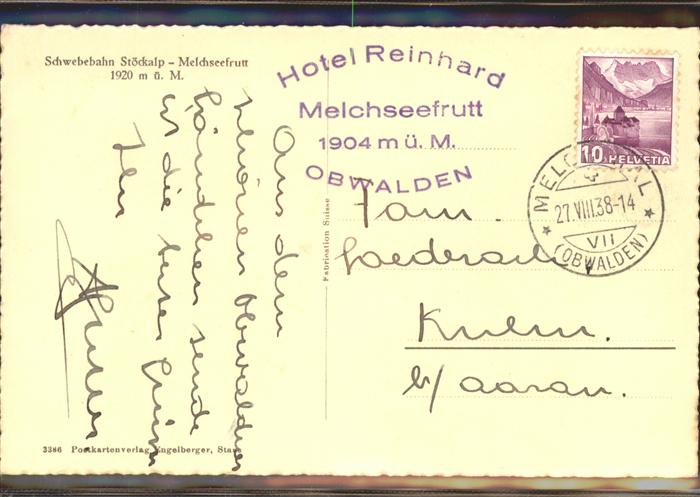 Schwebebahn Stöckalp - Melchseefrutt
1920 m ü. M.
Hotel Reinhard
Melchseefrutt
1904 m ü. M.
OBWALDEN
10 HELVETIA
MELCHTAL
27.VIII.38-14
VII
(OBWALDEN)
Aus dem
schönen Obwaldner
Ländchen sende
ich die besten Grüsse
Ihr
Fabrication Suisse
Fam.
Kulm
b/ Aarau.
3386 Postkartenverlag Engelberger, Stans